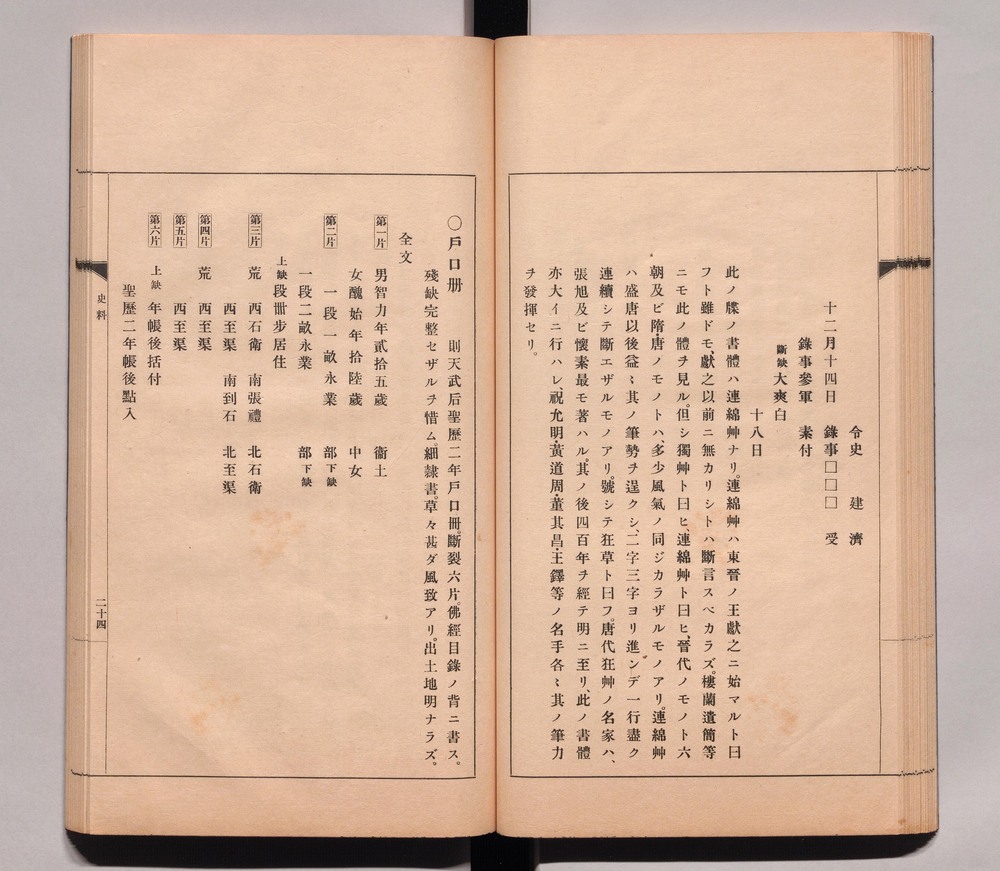 令史　建　濟
十二月十四日　錄事□□□　受
錄事參軍　素付
斷缺大爽白
十八日
此ノ牒ノ書體ハ連綿艸ナリ。連綿艸ハ東晉ノ王獻之ニ始マルト曰
フト雖ドモ、獻之以前ニ無カリシトハ斷言スベカラズ。樓蘭遺簡等
ニモ此ノ體ヲ見ル。但シ獨艸ト曰ヒ、連綿艸ト曰ヒ、晉代ノモノト六
朝及ビ隋・唐ノモノトハ、多少風氣ノ同ジカラザルモノアリ。連綿艸
ハ盛唐以後益〻其ノ筆勢ヲ逞クシ、二字三字ヨリ進ンデ一行盡ク
連續シテ斷エザルモノアリ。號シテ狂草ト曰フ。唐代狂艸ノ名家ハ、
張旭及ビ懷素最モ著ハル。其ノ後四百年ヲ經テ明ニ至リ、此ノ書體
亦大イニ行ハレ、祝允明・黃道周・董其昌・王鐸等ノ名手各〻其ノ筆力
ヲ發揮セリ。
〇戶口册　則天武后聖歷二年戶口冊。斷裂六片。佛經目錄ノ背ニ書ス。
殘缺完整セザルヲ惜ム。細隸書。草々甚ダ風致アリ。出土地明ナラズ。
全文
第一片　男智力年貳拾五歲　衞士
女醜始年拾陸歲　中女
第二片　一段一畝永業　部下缺
一段二畝永業　部下缺
上缺段卌步居住
第三片　荒　西石衞　南張禮　北石衞
西至渠　南到石　北至渠
第四片　荒　西至渠
第五片　西至渠
第六片　上缺　年帳後括付
聖歷二年帳後點入
史料
二十四